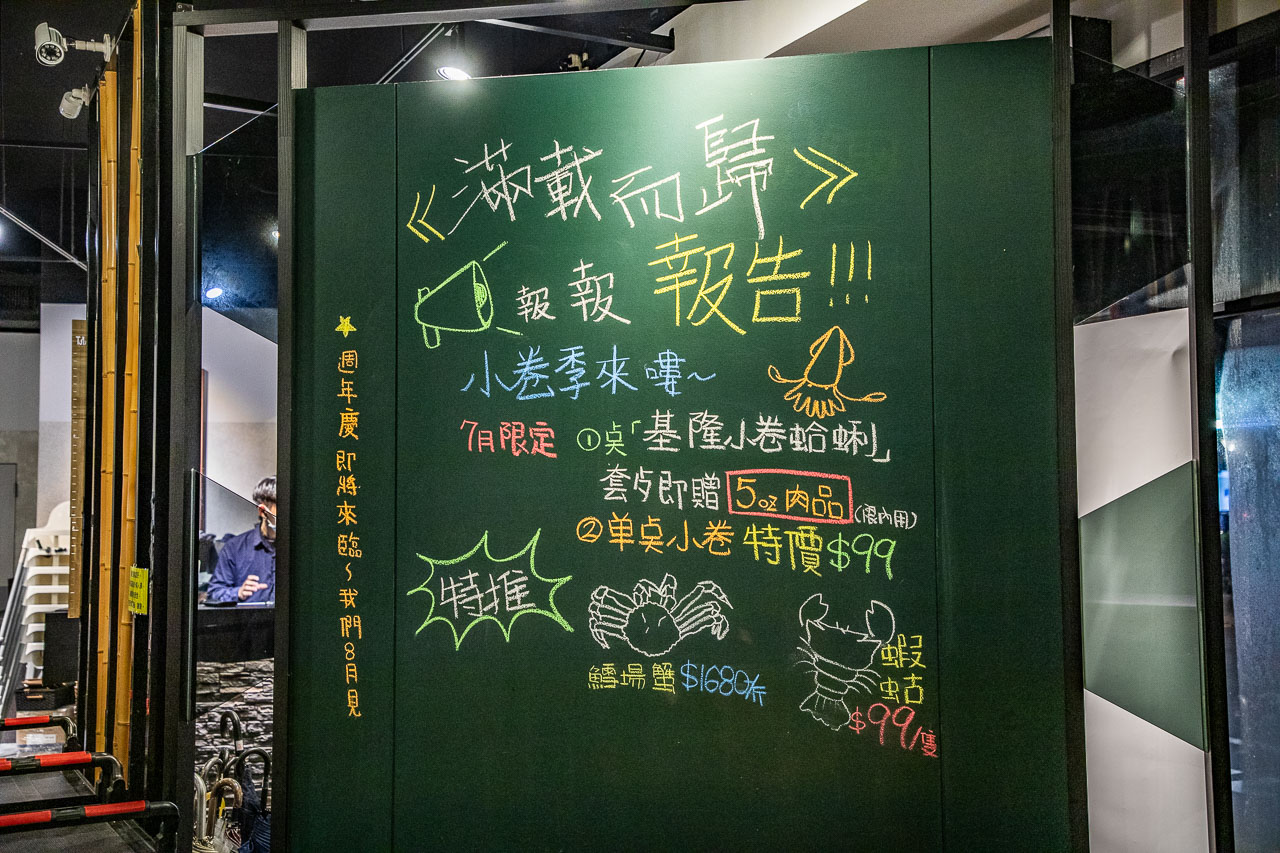 《滿載而歸》
報報報告!!!
小卷季來嘍~
7月限定 ①点「基隆小卷蛤蜊」
套歺即贈 5oz肉品 (限內用)
②单点小卷 特價$99
特推
鱈場蟹 $1680/斤
蝦蛄
$99/隻
週年慶即將來臨~我們8月見